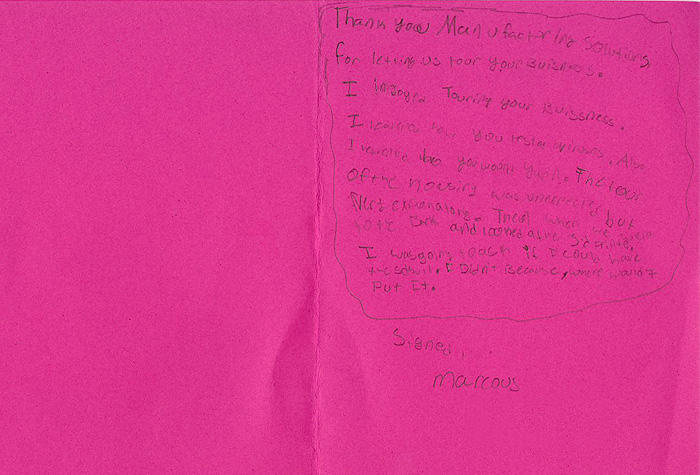 Thank you Manufactoring Solutions
for letting us tour your Buisness.
I injoyed Touring your Buissness.
I learned how you test windows. Also
I learned how you want The tour
of the housing was unexpected but
Very explanatory. Then when we went
to the Back and looked at the
I was going to ask if I could have
the I Didn't Because, where would I
Put It.
Signed,
Marcous